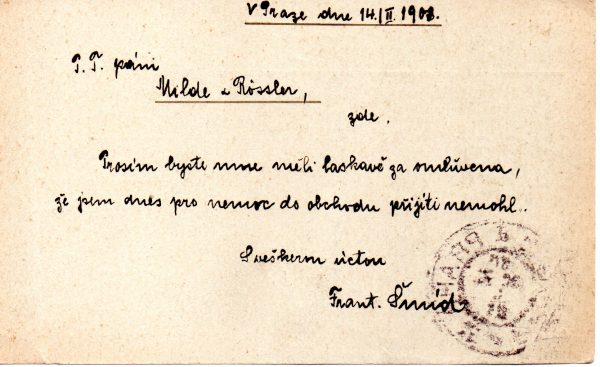 V Praze dne 14./II. 1908.
P. T. páni
Milde a Rössler,
zde.
Prosím byste mne měli laskavě za omluvena,
že jsem dnes pro nemoc do obchodu přijíti nemohl.
S veškerou úctou
Frant. Šmíd